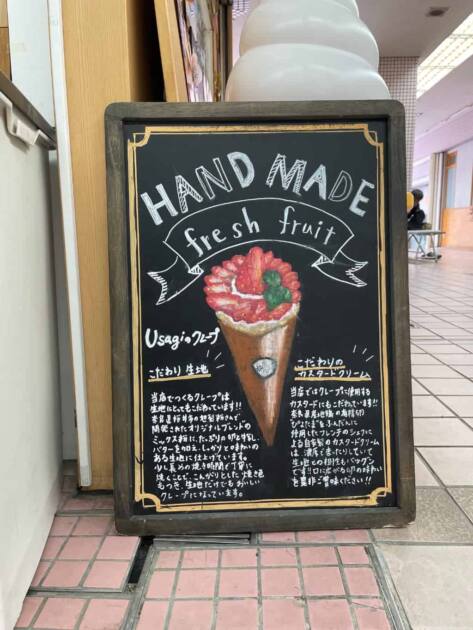 HAND MADE
fresh fruit
Usagiのクレープ
こだわり 生地
当店でつくるクレープは
生地にとってもこだわっています!!
奈良県桜井市の
開発されたオリジナルブレンドの
ミックス粉に、たっぷりの卵と
バターを加え、しっかりと味わいの
ある生地に仕上げています。
少し長めの焼き時間で丁寧に
焼くことで、こんがりとした焼き色
もつき、生地だけでもおいしい
クレープになっています。
こだわりの
カスタードクリーム
当店ではクレープに使用する
カスタードにもこだわっています!!
奈良県産地鶏の有精卵
をふんだんに
使用したフレンチのシェフに
よる自家製のカスタードクリーム
は、濃厚で
生地との相性もバツグン
を是非ご賞味ください!!